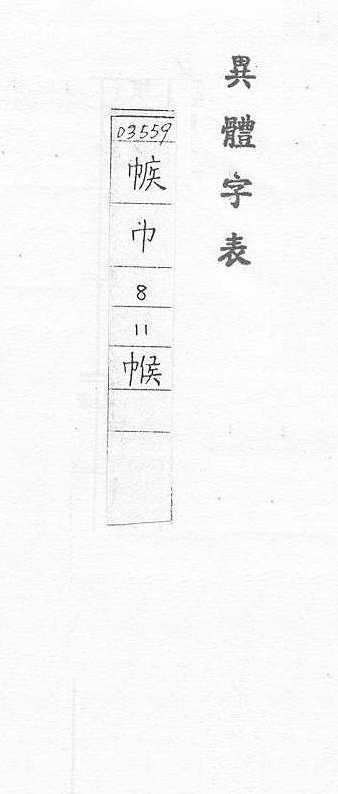 異體字表
03559
㡋
巾
8
11
帿